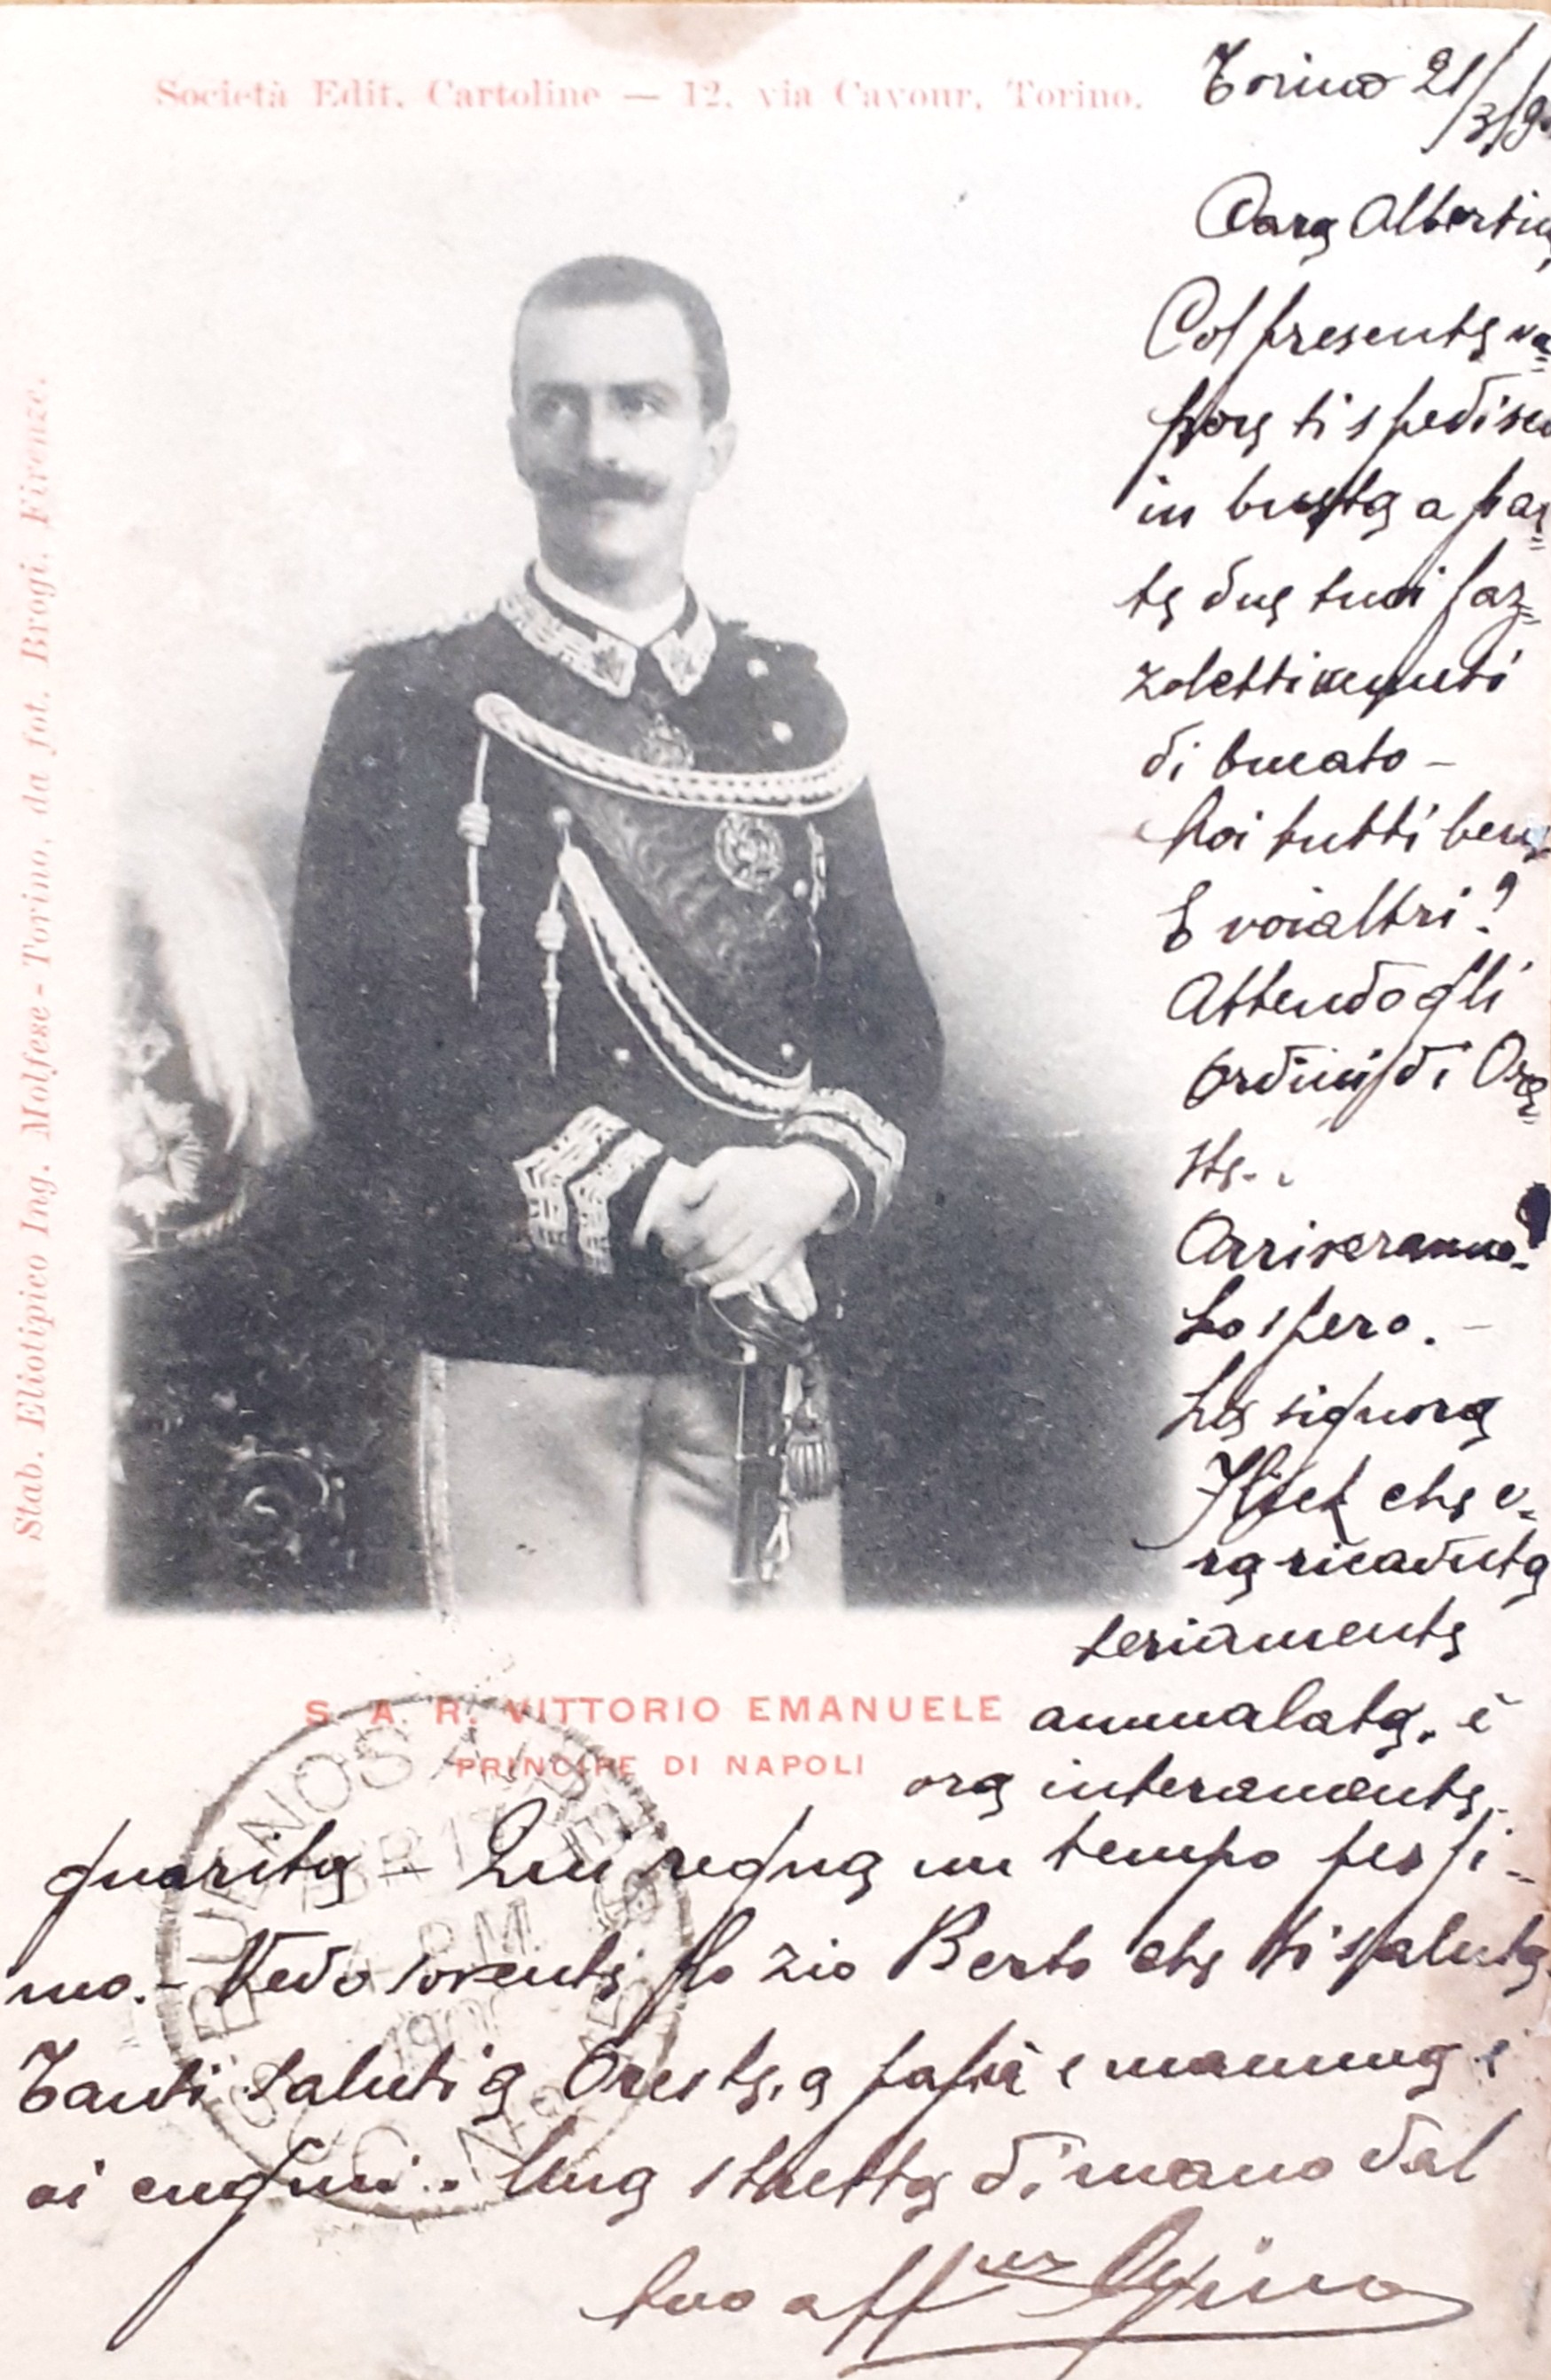 Società Edit. Cartoline — 12, via Cavour, Torino.
Stab. Eliotipico Ing. Molfese - Torino, da fot. Brogi. Firenze.
Torino 21/3/9
Cara Albertina
Col presente va=
pore ti spedisco
in busta a par=
te due tuoi faz=
zoletti venuti
di bucato -
Noi tutti bene
E voialtri?
Attendo gli
ordini di Ore=
ste.
Arriveranno?
Lo spero. -
La signora
che e=
ra ricaduta
seriamente
ammalata, è
ora interamente
S. A. R. VITTORIO EMANUELE
PRINCIPE DI NAPOLI
guarita - Qui regna un tempo pessi=
mo. - Vedo sovente lo zio Berto che ti saluta.
Tanti saluti a Oreste, a papà e mamma e
ai cugini. Una stretta di mano dal
tuo aff mo Gino
BUENOS AIRES
ABR 17
4 P.M.
1900